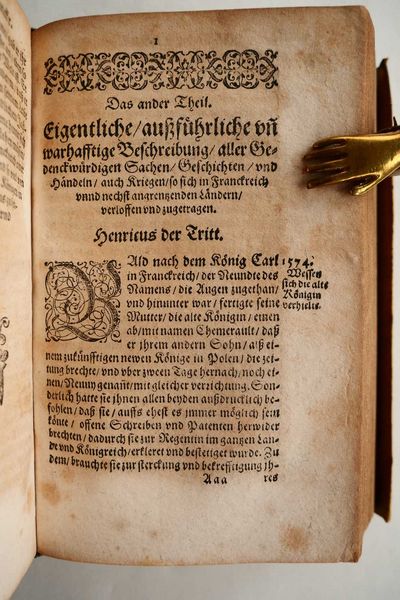 1
Das ander Theil.
Eigentliche/außführliche vñ
warhafftige Beschreibung/aller Ge-
denckwürdigen Sachen/Geschichten/vnd
Händeln/auch Kriegen/so sich in Franckreich
vnnd nechst angrentzenden Ländern/
verloffen vnd zugetragen.
Henricus der Tritt.
BAld nach dem König Carl
in Franckreich/der Neundte des
Namens/die Augen zugethan/
vnd hinunter war/fertigte seine
Mutter/die alte Königin/einen
ab/mit namen Chemerault/daß
er jhrem andern Sohn/alß ei-
nem zukünfftigen newen Könige in Polen/die zei-
tung brechte/vnd vber zween Tage hernach/noch ei-
nen/Neuuy genañt/mit gleicher verrichtung. Son-
derlich hatte sie jhnen allen beyden außdrücklich be-
fohlen/daß sie/auffs ehest es jmmer möglich sein
könte/offene Schreiben vnd Patenten herwider
brechten/dadurch sie zur Regentin im gantzen Lan-
de vnd Königreich/erkleret vnd bestetiget würde. Zu
dem/brauchte sie zur sterckung vnd bekrefftigung jh-
Aaa res
1574.
Wessen
sich die alte
Königin
verhielte.